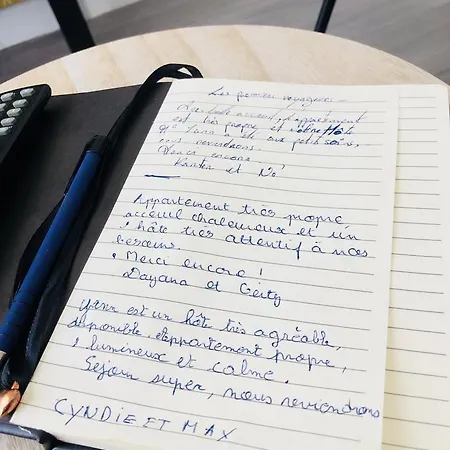 Les premiers voyageurs -
accueil, l'appartement
est très propre et notre hôte
Yann a été aux petits soins,
nous reviendrons.
Merci encore.
et No
Appartement très propre
acceuil chaleureux et un
hôte très attentif à nos
besoins.
Merci encore !
Dayana et Géity
Yann est un hôte très agréable,
disponible. Appartement propre,
lumineux et calme.
Séjour super, nous reviendrons
CYNDIE ET MAX